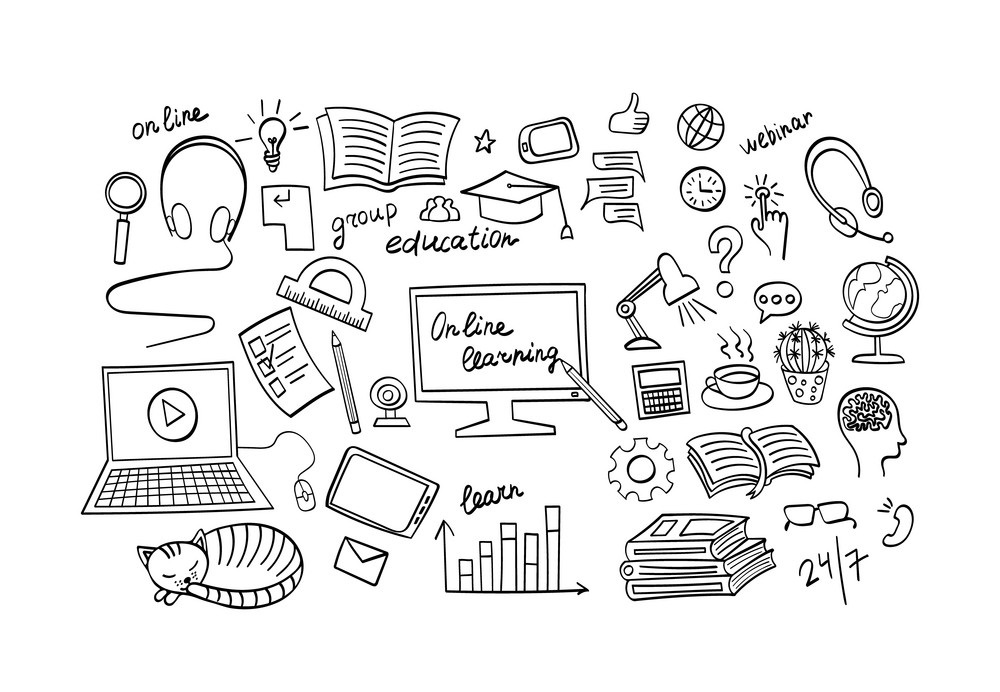 online
webinar
group
education
Online
learning
learn
24/7